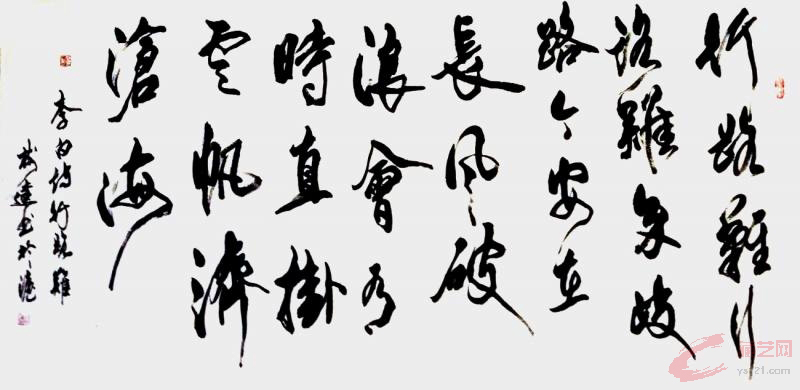 行路難行
路難多歧
路今安在
長風破
浪會有
時直掛
雲帆濟
滄海
李白詩行路難
書於滬